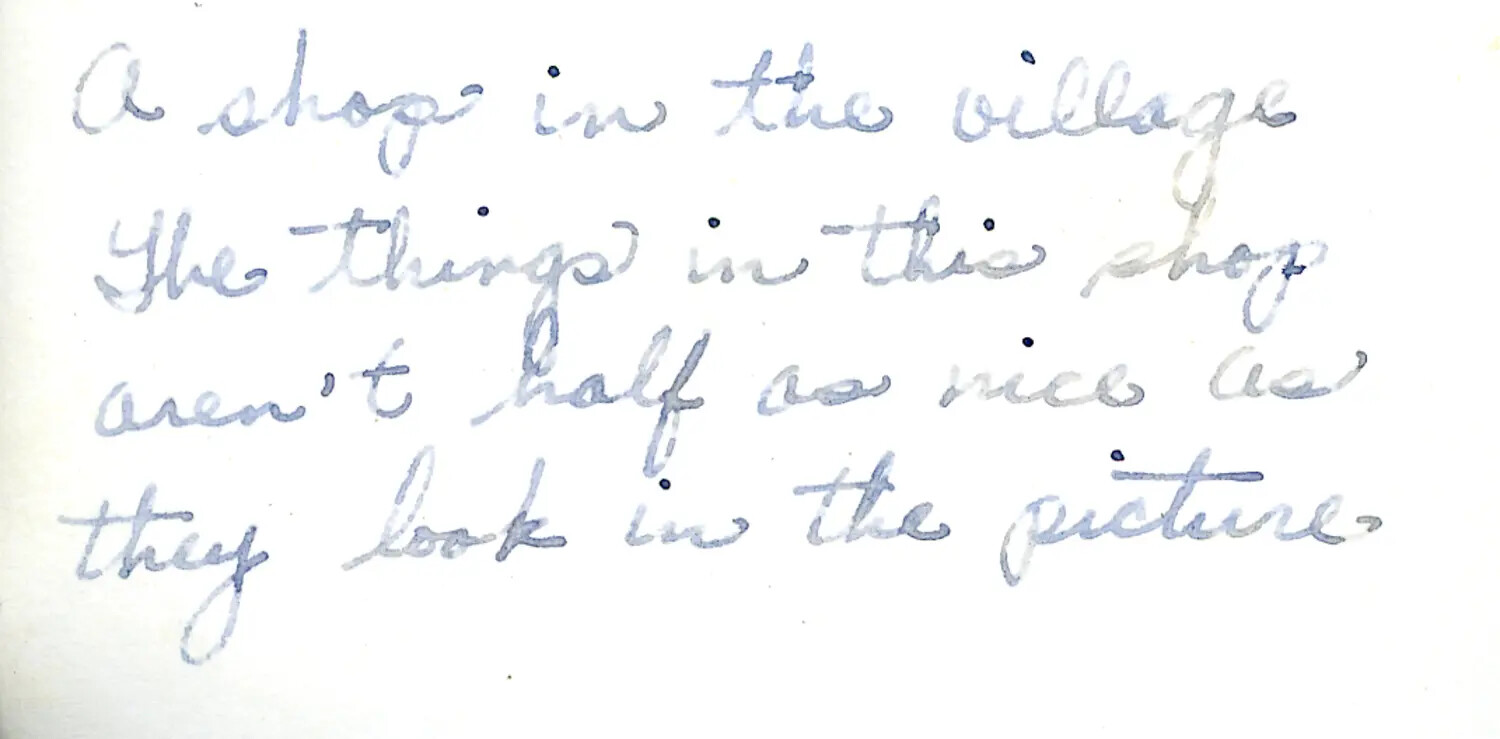 A shop in the village
The things in this shop
aren't half as nice as
they look in the picture